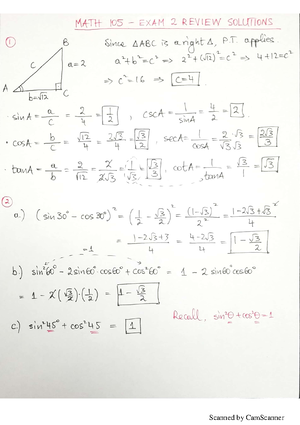 MATH 105 - EXAM 2 REVIEW SOLUTIONS
① Since △ABC is a right △, P.T. applies
B
a²+b²=c² ⇒ 2²+(√12)²=c² ⇒ 4+12=c²
a=2
⇒ c²=16 ⇒ c=4
A b=√12 C
· sinA = a/c = 2/4 = 1/2 , cscA = 1/sinA = 4/2 = 2
· cosA = b/c = √12/4 = 2√3/4 = √3/2 , secA = 1/cosA = 2/√3 · √3/√3 = 2√3/3
· tanA = a/b = 2/√12 = 2/2√3 = 1/√3 = √3/3 , cotA = 1/tanA = √3/1 = √3
②
a.) (sin30° - cos30°)² = (1/2 - √3/2)² = (1-√3)²/2² = 1-2√3+√3²/4
= 1-2√3+3/4 = 4-2√3/4 = 1 - √3/2
=1
b) sin²60° - 2sin60° cos60° + cos²60° = 1 - 2 sin60 cos60
= 1 - 2(√3/2)(1/2) = 1 - √3/2
Recall, sin²θ + cos²θ = 1
c.) sin²45° + cos²45 = 1
Scanned by CamScanner